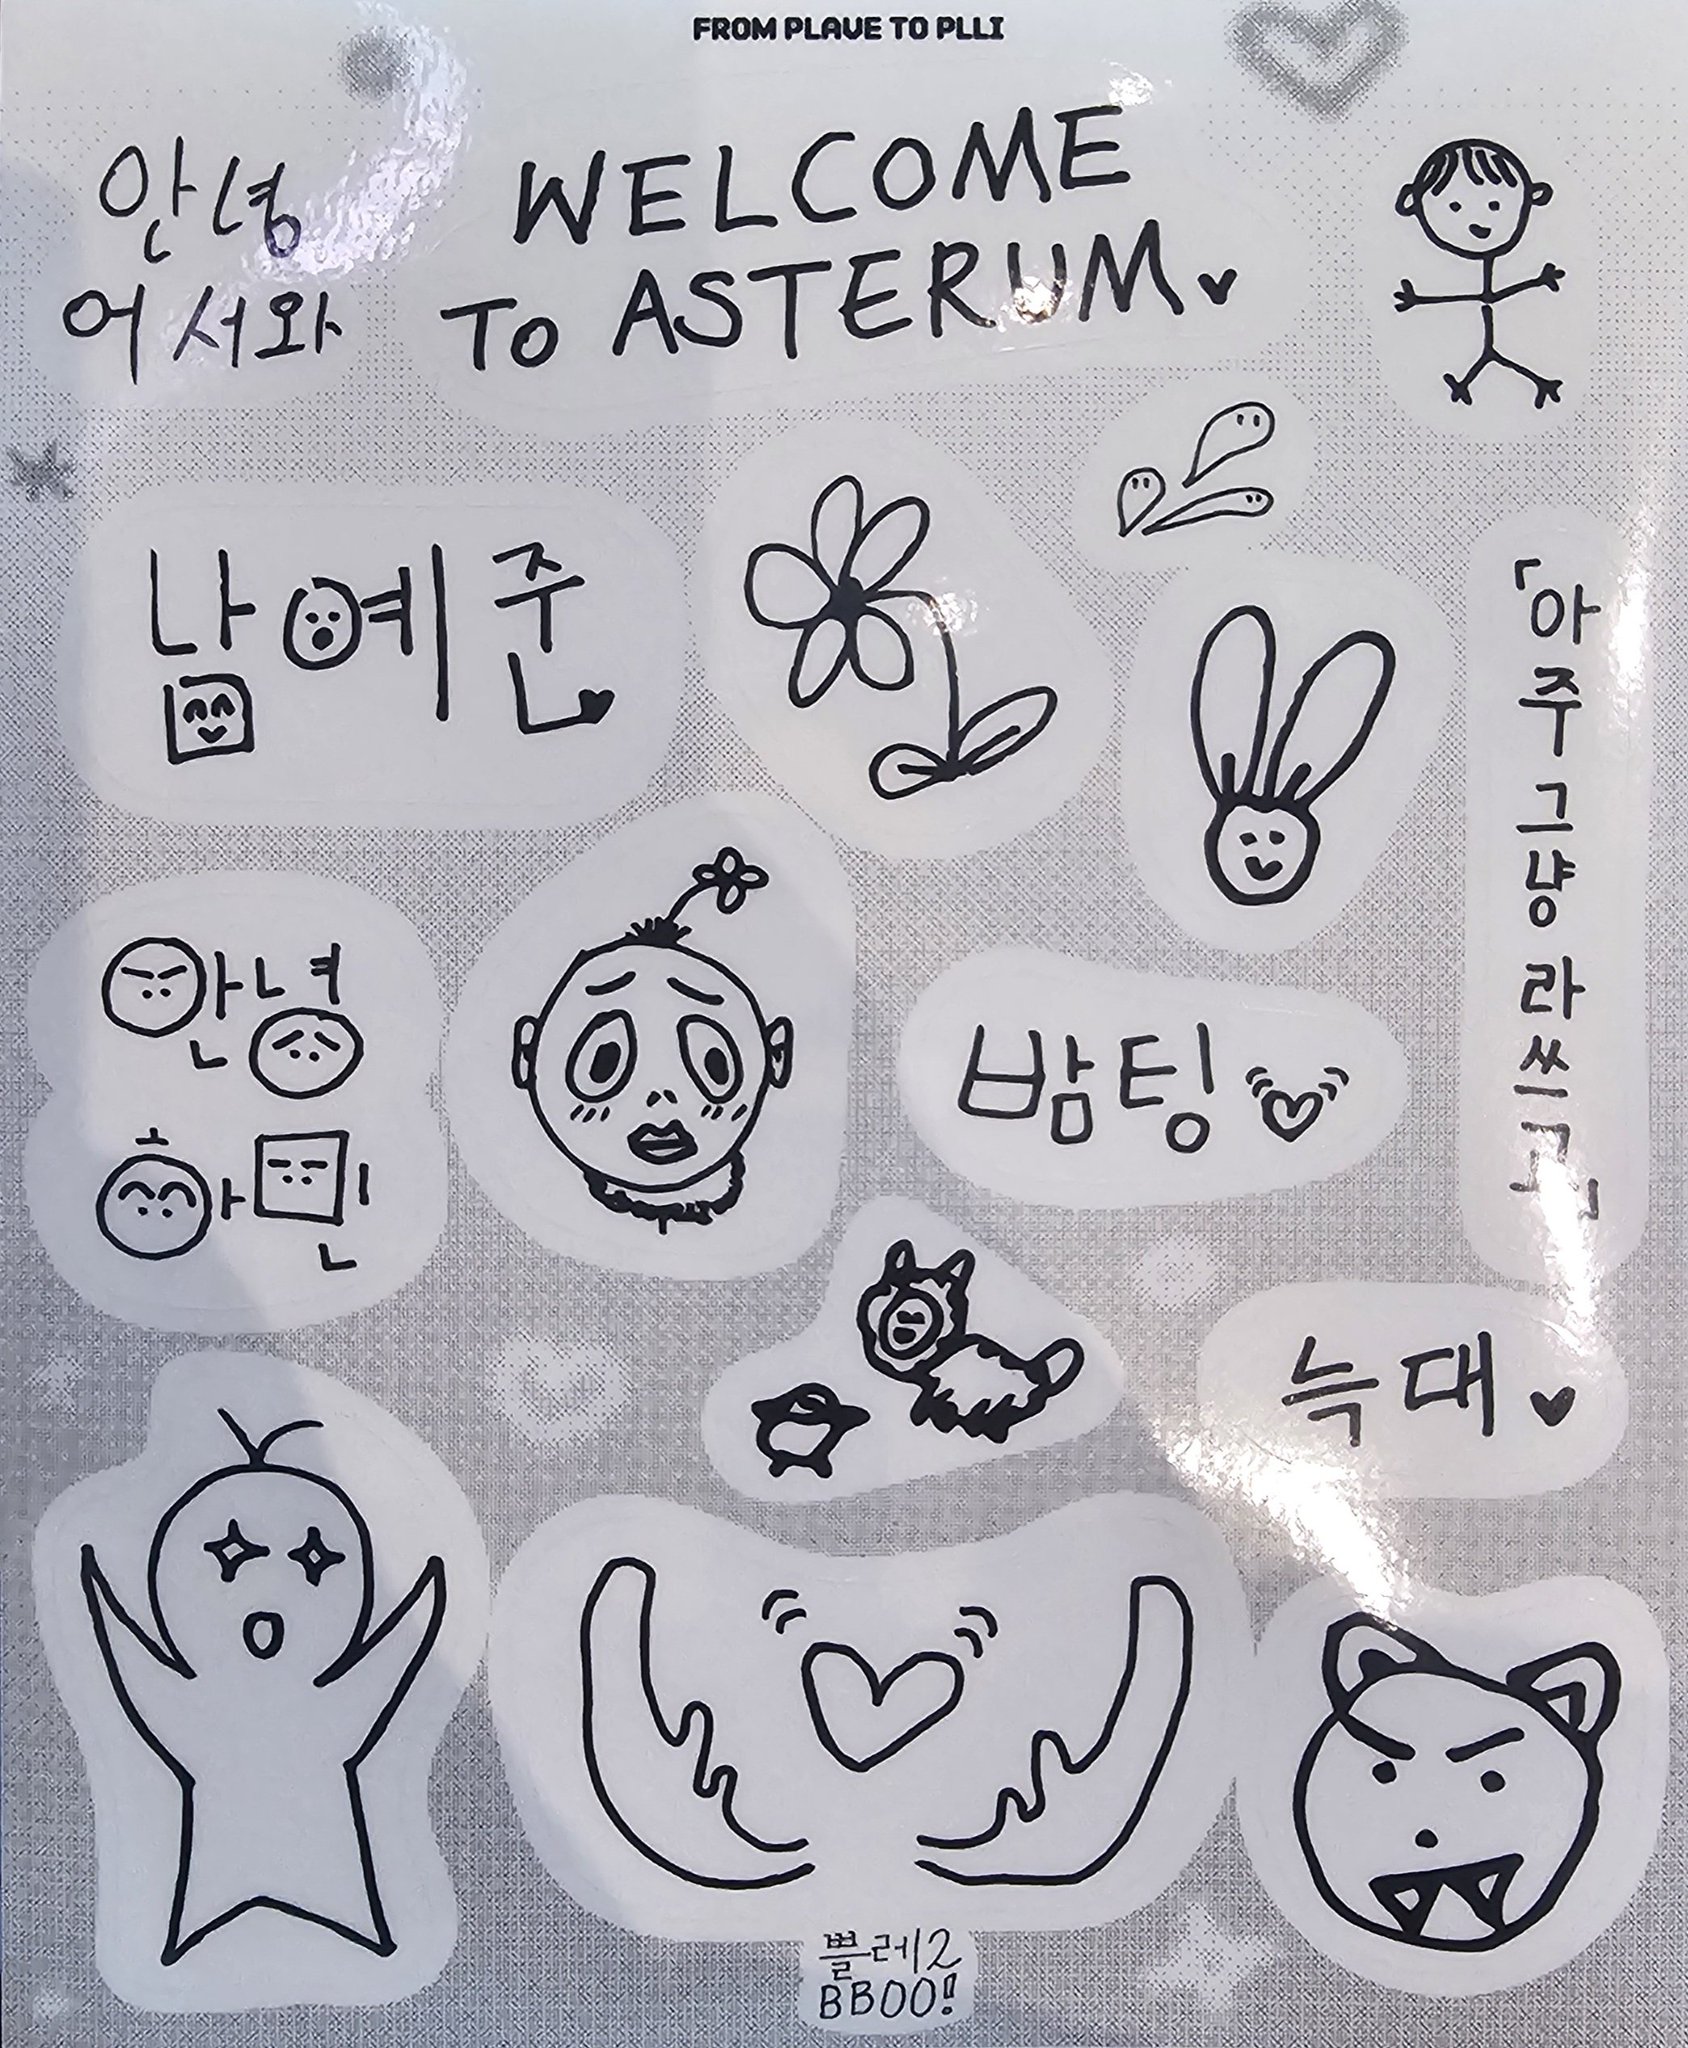 FROM PLAVE TO PLLI
안녕
어서와
WELCOME
TO ASTERUM
남예준
「아주 그냥 라쓰고」
안녕
하민
밤팅
늑대
쁠레2
BBOO!